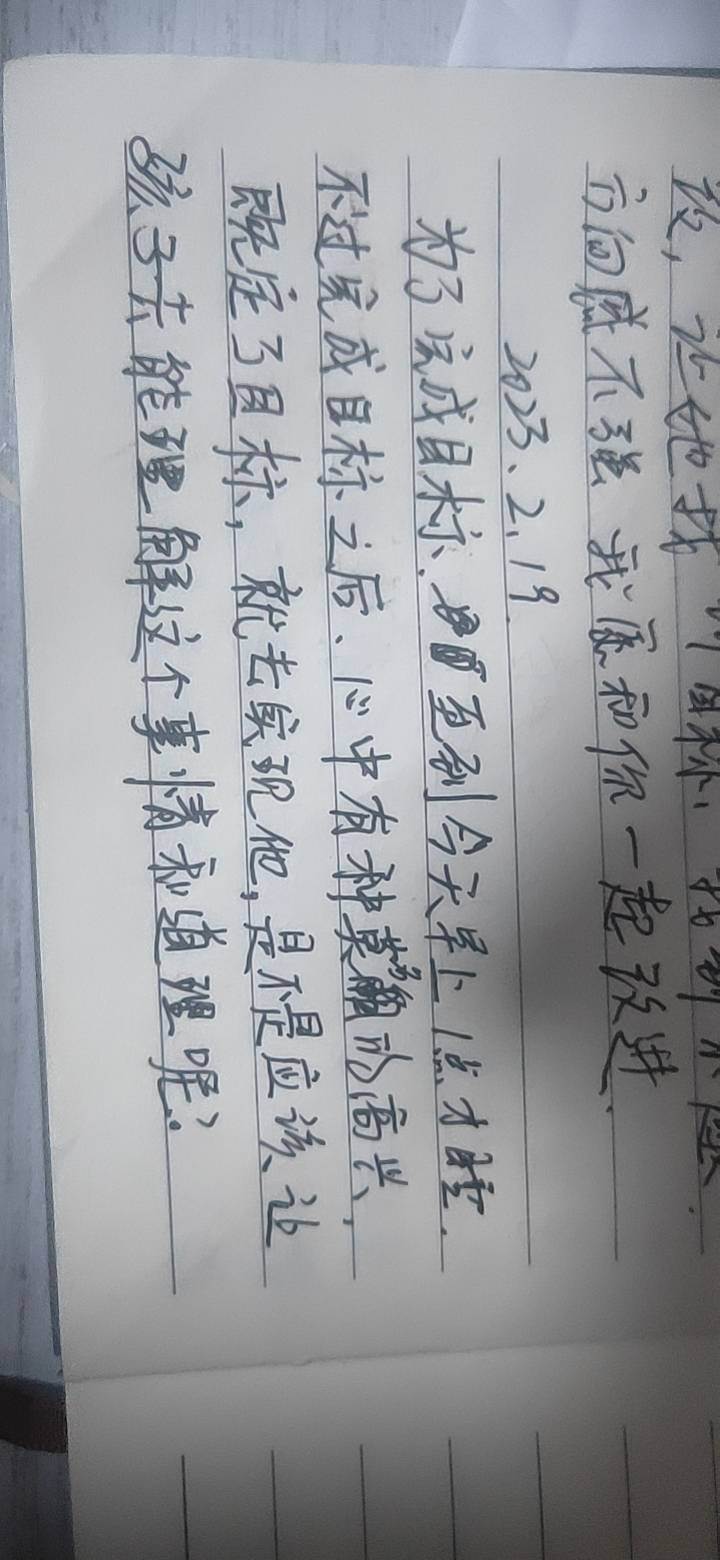 方向感不强 我愿和你一起改进.
2023.2.19.
为了完成目标. 直到今天早上1点才睡.
不过完成目标之后、心中有种莫的高兴,
既定了目标, 就去实现他, 是不是应该让
孩子去能理解这个事情和道理呢?